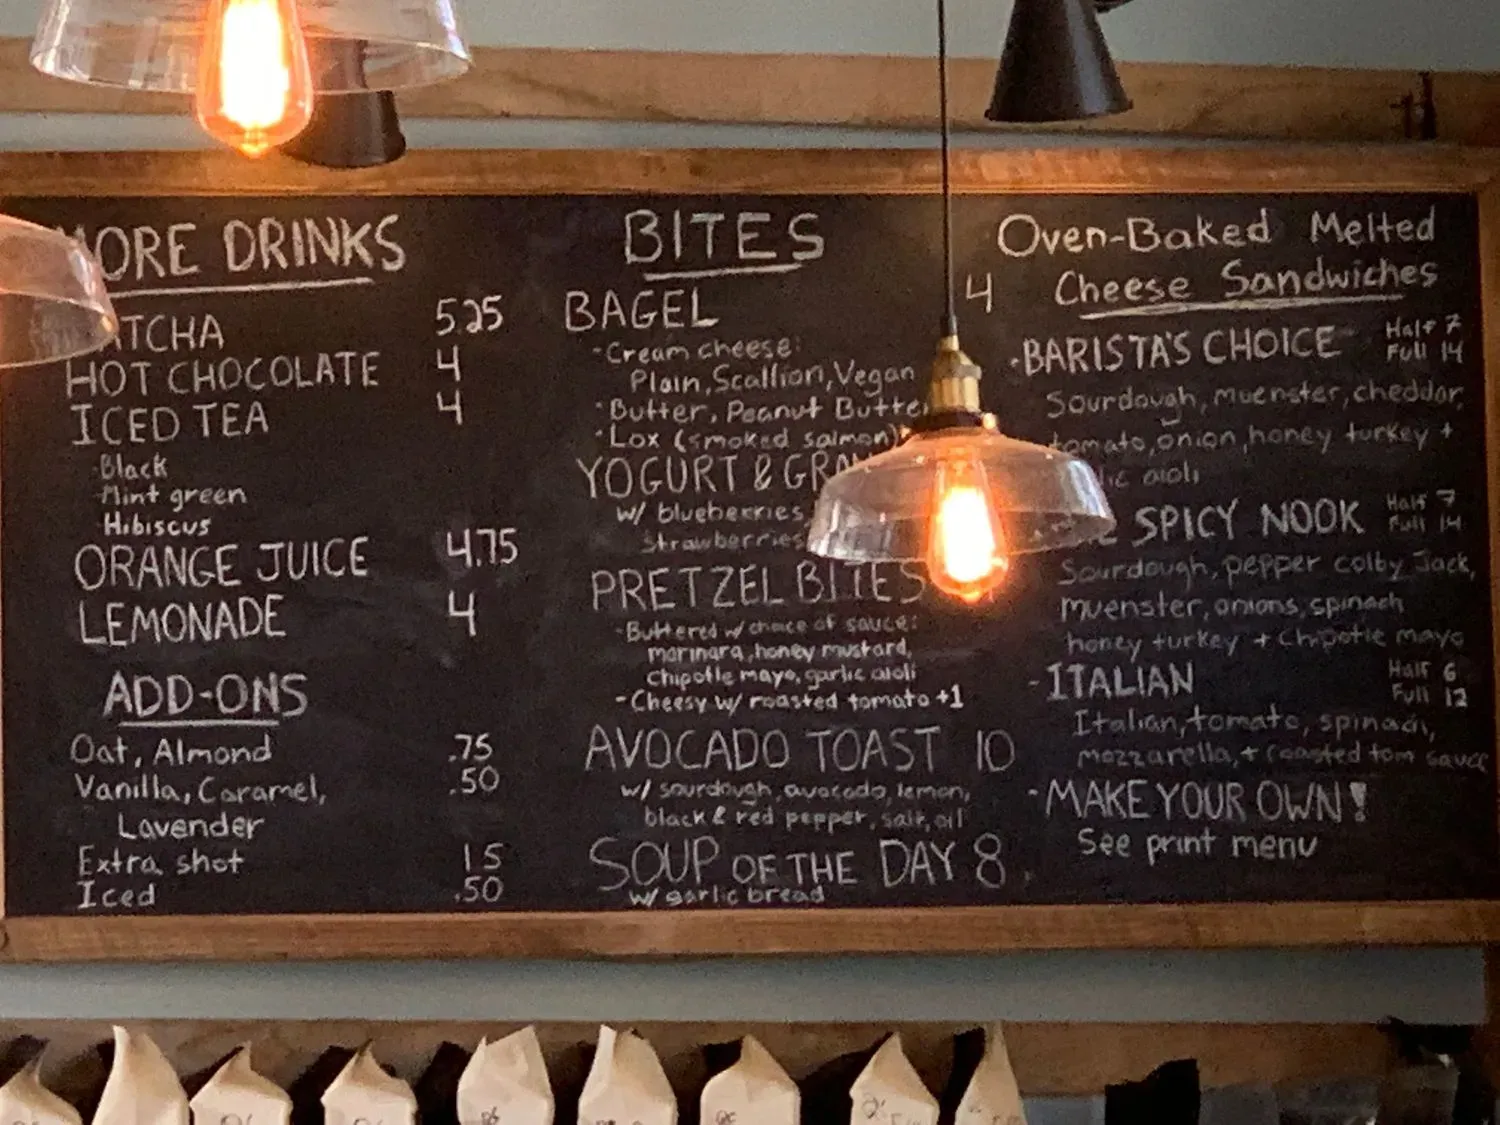 MORE DRINKS
MATCHA 5.25
HOT CHOCOLATE 4
ICED TEA 4
Black
Mint green
Hibiscus
ORANGE JUICE 4.75
LEMONADE 4
ADD-ONS
Oat, Almond .75
Vanilla, Caramel, .50
Lavender
Extra shot 1.5
Iced .50
BITES
BAGEL 4
- Cream cheese:
Plain, Scallion, Vegan
- Butter, Peanut Butte
- Lox (smoked salmon)
YOGURT & GRA
w/ blueberries,
strawberries
PRETZEL BITES
- Buttered w/ choice of sauce:
marinara, honey mustard,
chipotle mayo, garlic aioli
- Cheesy w/ roasted tomato +1
AVOCADO TOAST 10
w/ sourdough, avocado, lemon,
black & red pepper, salt, oil
SOUP OF THE DAY 8
w/ garlic bread
Oven-Baked Melted
Cheese Sandwiches
- BARISTA'S CHOICE Half 7
Full 14
Sourdough, muenster, cheddar,
tomato, onion, honey turkey +
lic aioli
SPICY NOOK Half 7
Full 14
Sourdough, pepper colby Jack,
muenster, onions, spinach
honey turkey + Chipotle mayo
- ITALIAN Half 6
Full 12
Italian, tomato, spinach,
mozzarella, + roasted tom sauce
- MAKE YOUR OWN!
See print menu